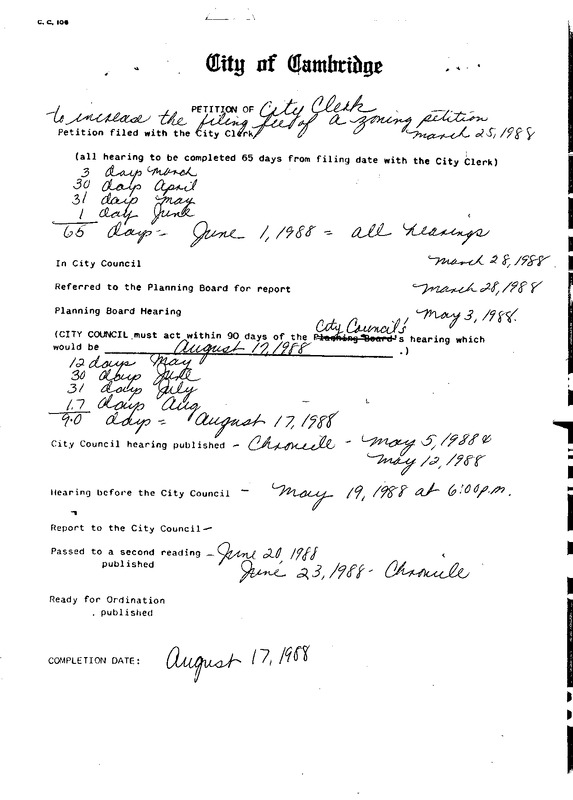 C. C. 106
City of Cambridge
PETITION OF City Clerk
to increase the filing fee of a zoning petition
Petition filed with the City Clerk March 25, 1988
(all hearing to be completed 65 days from filing date with the City Clerk)
3 days March
30 days April
31 days May
1 day June
65 days = June 1, 1988 = all hearings
In City Council March 28, 1988
Referred to the Planning Board for report March 28, 1988
Planning Board Hearing May 3, 1988.
City Council's
(CITY COUNCIL must act within 90 days of the Planning Board's hearing which
would be August 17, 1988 .)
12 days May
30 days June
31 days July
17 days Aug
90 days = August 17, 1988
City Council hearing published - Chronicle - May 5, 1988 &
May 12, 1988
Hearing before the City Council - May 19, 1988 at 6:00 p.m.
Report to the City Council -
Passed to a second reading - June 20, 1988
published June 23, 1988 - Chronicle
Ready for Ordination
. published
COMPLETION DATE: August 17, 1988